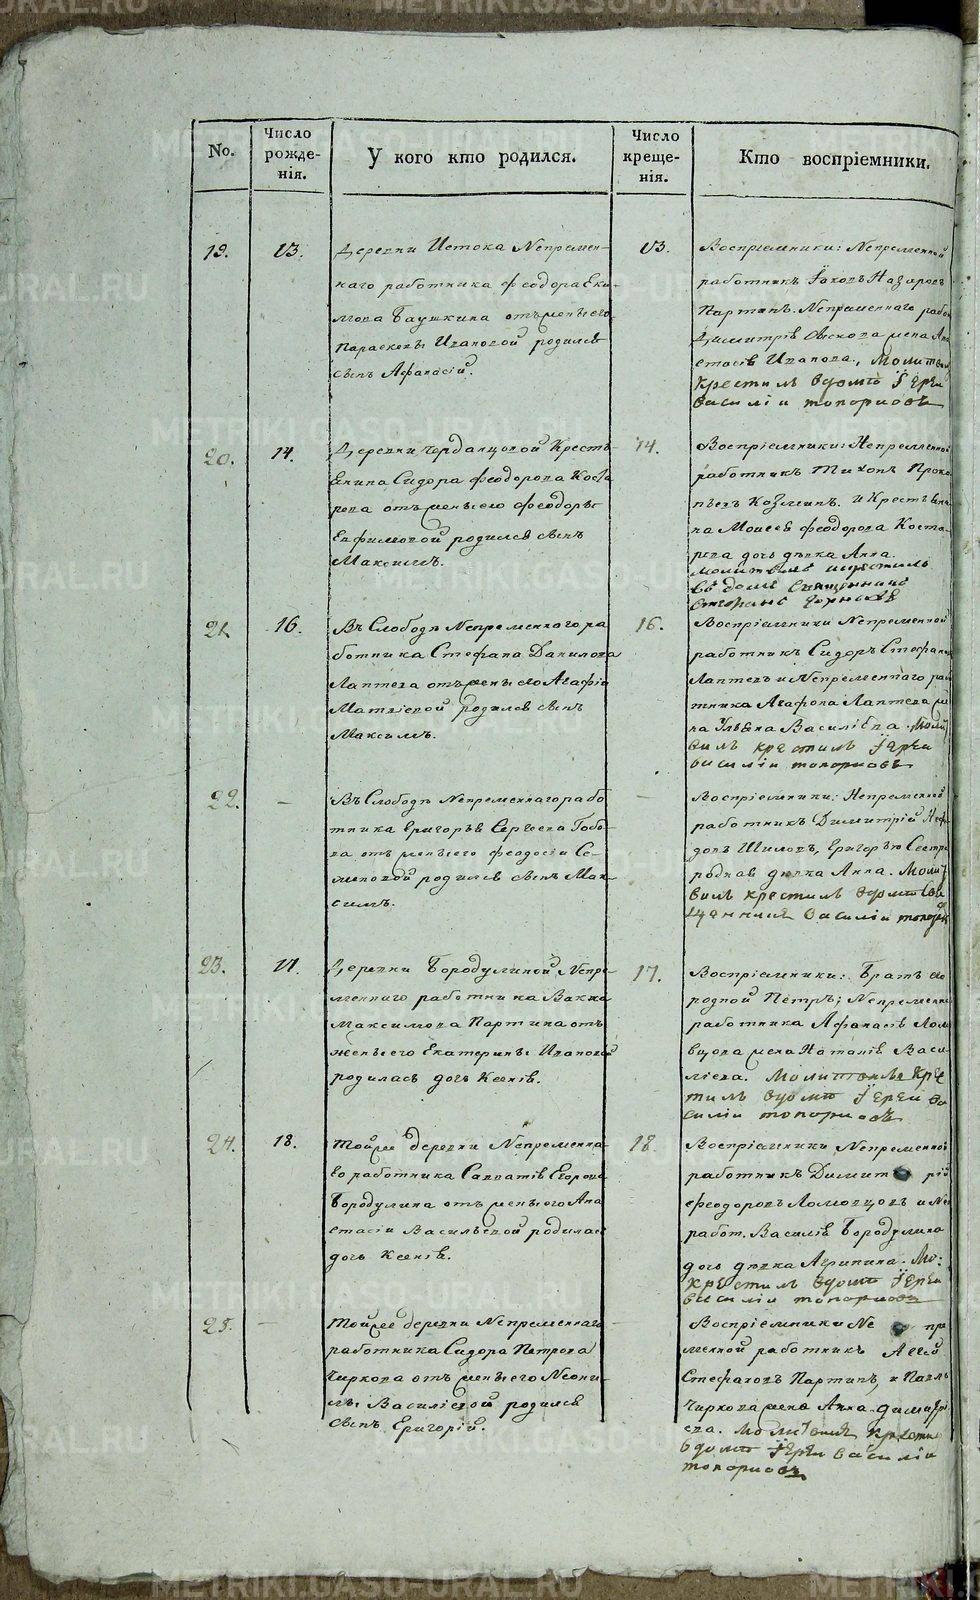 No.
Число рожде-нія.
У кого кто родился.
Число креще-нія.
Кто воспріемники.
19.
13.
Деревни Истока Непремен-
наго работника Феодора Еки-
мова Баушкина отъ жены его
Параскевы Ивановой родился
сынъ Афанасій.
13.
Воспріемники: Непременной
работникъ Іаковъ Назаровъ
Партинъ. Непременнаго рабо
Димитрія жена Ана
стасія Иванова, Молитвил
Крестилъ вдомѣ Іерей
василіи топорковъ
20.
14.
Деревни Черданцовой Кресть
янина Сидора Феодорова Коста
рева отъ жены его Феодоры
Евфимовой родился сынъ
Максимъ.
14.
Воспріемники: Непременной
работникъ Тихонъ Проко
пьевъ Козминъ. и Крестьяни
на Моисея Феодорова Коста-
рева дочь дѣвка Анна.
молитвилъ икрестилъ
въ доме священникъ
21.
16.
Въ Слободѣ Непременнаго ра
ботника Стефана Данилова
Лаптева отъ жены его Агафіи
Матвіевой родился сынъ
Максимъ.
16.
Воспріемники Непременной
работникъ Сидоръ Стефановъ
Лаптевъ и Непременнаго рабо
тника Агафона Лаптева же
на Ульяна Василіева. Молит
вилъ крестилъ Іерей
василіи топорковъ
22.
—
Въ Слободѣ Непременнаго рабо
тника Григорья Сергеева Гобо-
ва отъ жены его Феодосіи Се-
меновой родился сынъ Мак-
симъ.
—
Воспріемники: Непременной
работникъ Димитрій Неф
довъ Шиловъ, Григорью Сестра
родная дѣвка Анна. Молит
вилъ крестилъ вдомѣ свя
щенникъ василіи топорк
23.
17.
Деревни Бородулиной Непре-
менного работника Вакка
Максимова Партина отъ
жены его Екатерины Ивановой
родилась дочь Ксенія.
17.
Воспріемники: Братъ его
родной Петръ; Непременна
работника Афанасія Лом
вцова жена Наталія Васи-
ліева. Молитвилъ Кре
тилъ вдомѣ Іерей ва
силіи топорковъ
24.
18.
Тойже деревни Непременна-
го работника Савватія Егорова
Бородулина отъ жены его Ана
стасіи Васильевой родилась
дочь Ксенія.
18
Воспріемники Непременной
работникъ Димитрій
Феодоровъ Ломовцовъ и Неп
работ. Василія Бородулина
дочь дѣвка Агрипина. Мо:
крестилъ вдомѣ Іерей
василіи топорковъ
25.
—
Тойже деревни Непременнаго
работника Сидора Петрова
Чиркова отъ жены его Неони-
лы Василіевой родился
сынъ Григорій.
Воспріемники Непре
менной работникъ
Стефановъ Партинъ, и Павла
Чиркова жена Анна Димитрі
ева. молитвилъ крести
вдомѣ Іереи василіи
топорковъ
METRIKI.GASO-URAL.RU